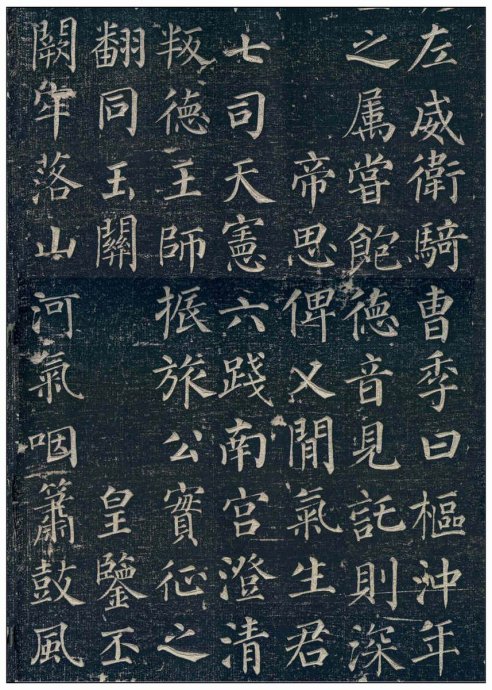 左威衛騎曹季曰樞沖年
之属嘗飽德音見託則深
帝思俾乂間氣生君
七司天憲六践南宫澄清
叛德王師振旅公實征之
翻同玉關皇鑒丕
闕年落山河氣咽簫鼓風